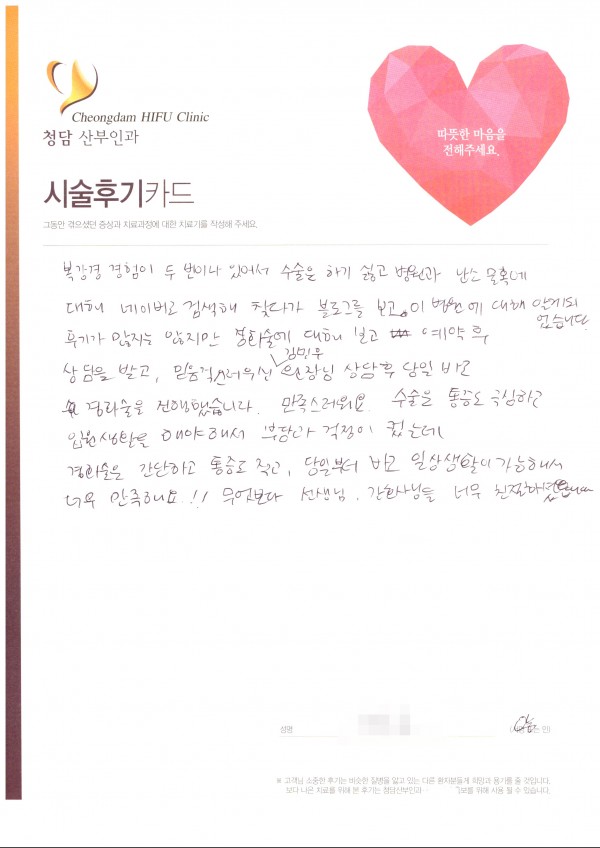 Cheongdam HIFU Clinic
청담 산부인과
따뜻한 마음을
전해주세요.
시술후기카드
그동안 겪으셨던 증상과 치료과정에 대한 치료기를 작성해 주세요.
복강경 경험이 두 번이나 있어서 수술은 하기 싫고 병원과 난소 물혹에
대해 네이버로 검색해 찾다가 블로그를 보고, 이 병원에 대해 알게되
었습니다.
후기가 많지는 않지만 경화술에 대해 보고 예약 후
상담을 받고, 믿음직스러우신 김민우 원장님 상담 후 당일 바로
경화술을 진행했습니다. 만족스러워요. 수술은 통증도 극심하고
입원생활을 해야해서 부담과 걱정이 컸는데
경화술은 간단하고 통증도 적고, 당일부터 바로 일상생활이 가능해서
너무 만족해요!! 무엇보다 선생님, 간호사님들 너무 친절하셨습니다
성명
※ 고객님 소중한 후기는 비슷한 질병을 앓고 있는 다른 환자분들께 희망과 용기를 줄 것입니다.
보다 나은 치료를 위해 본 후기는 청담산부인과… 보를 위해 사용 될 수 있습니다.